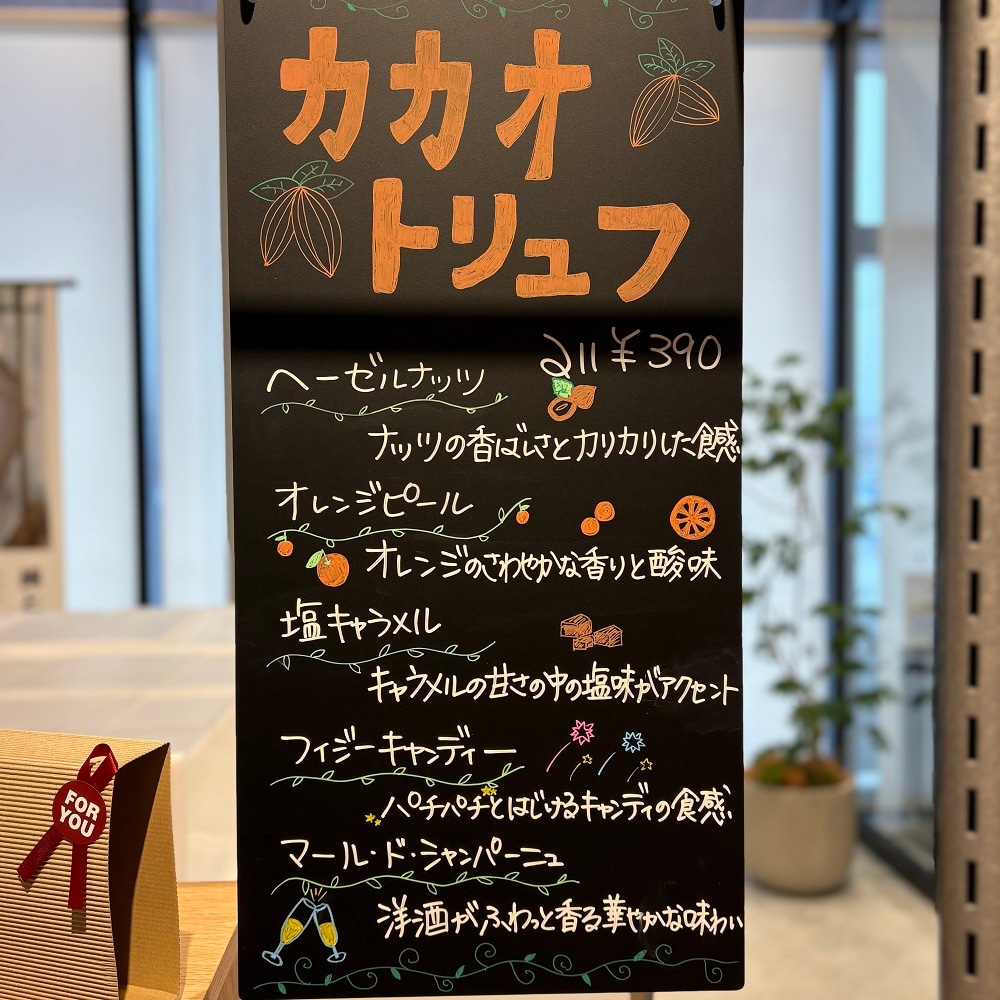 カカオ
トリュフ
2コ ¥390
ヘーゼルナッツ
ナッツの香ばしさとカリカリした食感
オレンジピール
オレンジのさわやかな香りと酸味
塩キャラメル
キャラメルの甘さの中の塩味がアクセント
フィジーキャンディー
パチパチとはじけるキャンディの食感
マール・ド・シャンパーニュ
洋酒がふわっと香る華やかな味わい
FOR
YOU